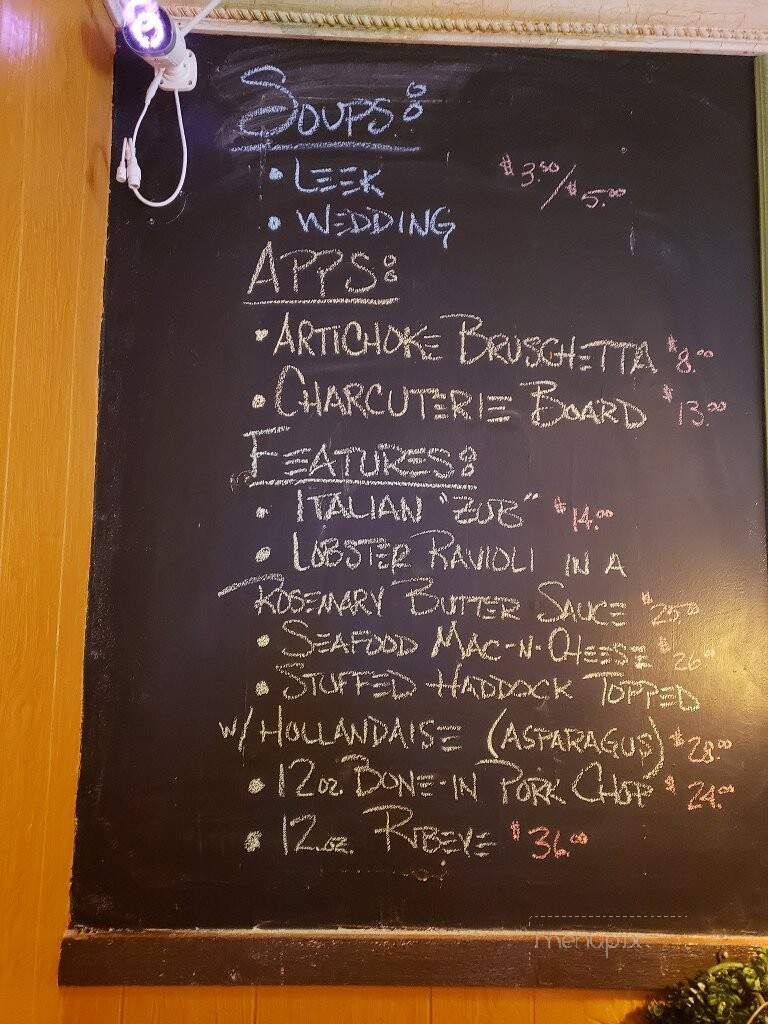 SOUPS:
• LEEK $3.50/$5.00
• WEDDING
APPS:
• ARTICHOKE BRUSCHETTA $8.00
• CHARCUTERIE BOARD $13.00
FEATURES:
• ITALIAN "ZUB" $14.00
• LOBSTER RAVIOLI IN A
ROSEMARY BUTTER SAUCE $25.00
• SEAFOOD MAC-N-CHEESE $26.00
• STUFFED HADDOCK TOPPED
W/ HOLLANDAISE (ASPARAGUS) $28.00
• 12oz. BONE-IN PORK CHOP $24.00
• 12oz. RIBEYE $36.00
menupix